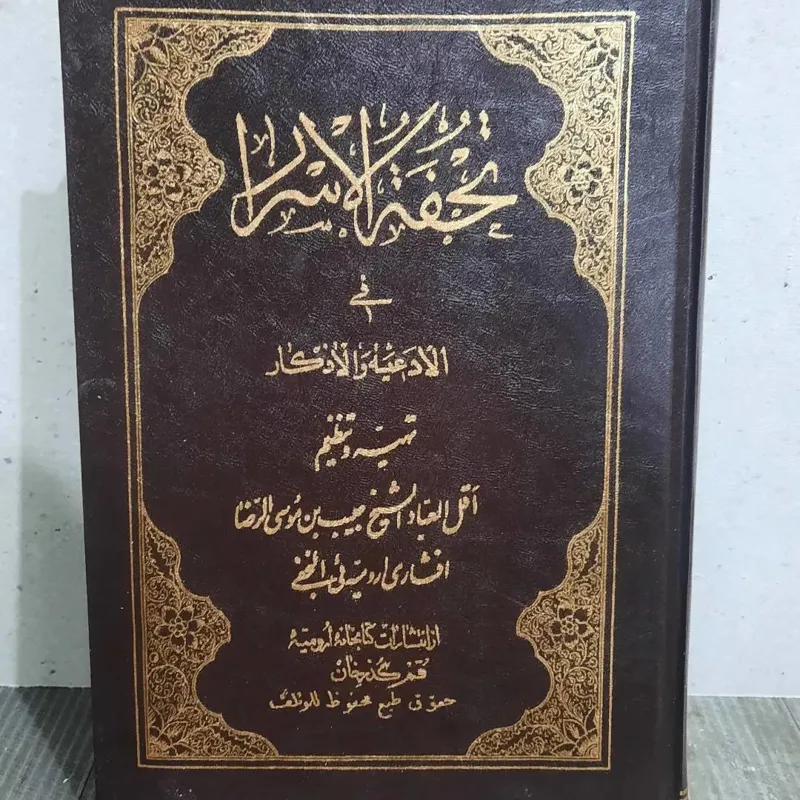 تُحْفَةُ الْأَسْرَار
في
الأدعيَةِ وَالأَذكار
تهيه و تنظيم
اَقل العباد الشيخ حبيب بن مُوسَى الرّضا
افشاری ارومیه‌ئی النجفے
از انتشارات کتابخانهٔ اُرومیّه
قم گذرخان
حقوق طبع محفوظ للمؤلف